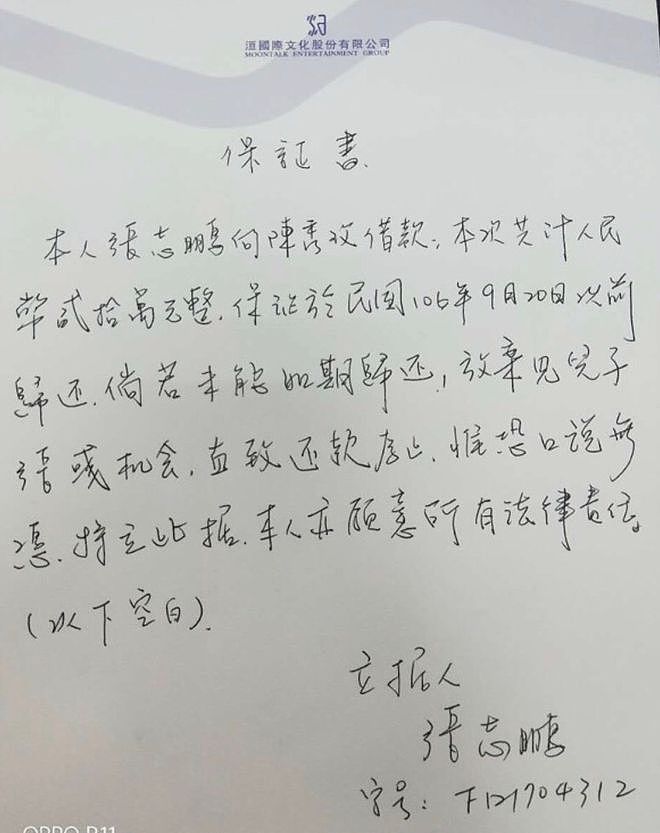 洹國際文化股份有限公司
MOONTALK ENTERTAINMENT GROUP
保証書.
本人張志鵬向陳喬玫借款,本次共计人民
幣貳拾萬元整.保证於民国106年9月20日以前
歸还.倘若未能如期歸还,放棄見兒子
張彧机会,直致还款為止.惟恐口说無
憑.特立此据.本人亦願意所有法律責任。
(以下空白).
立据人
張志鵬
字号: F121704312
OPPO R11